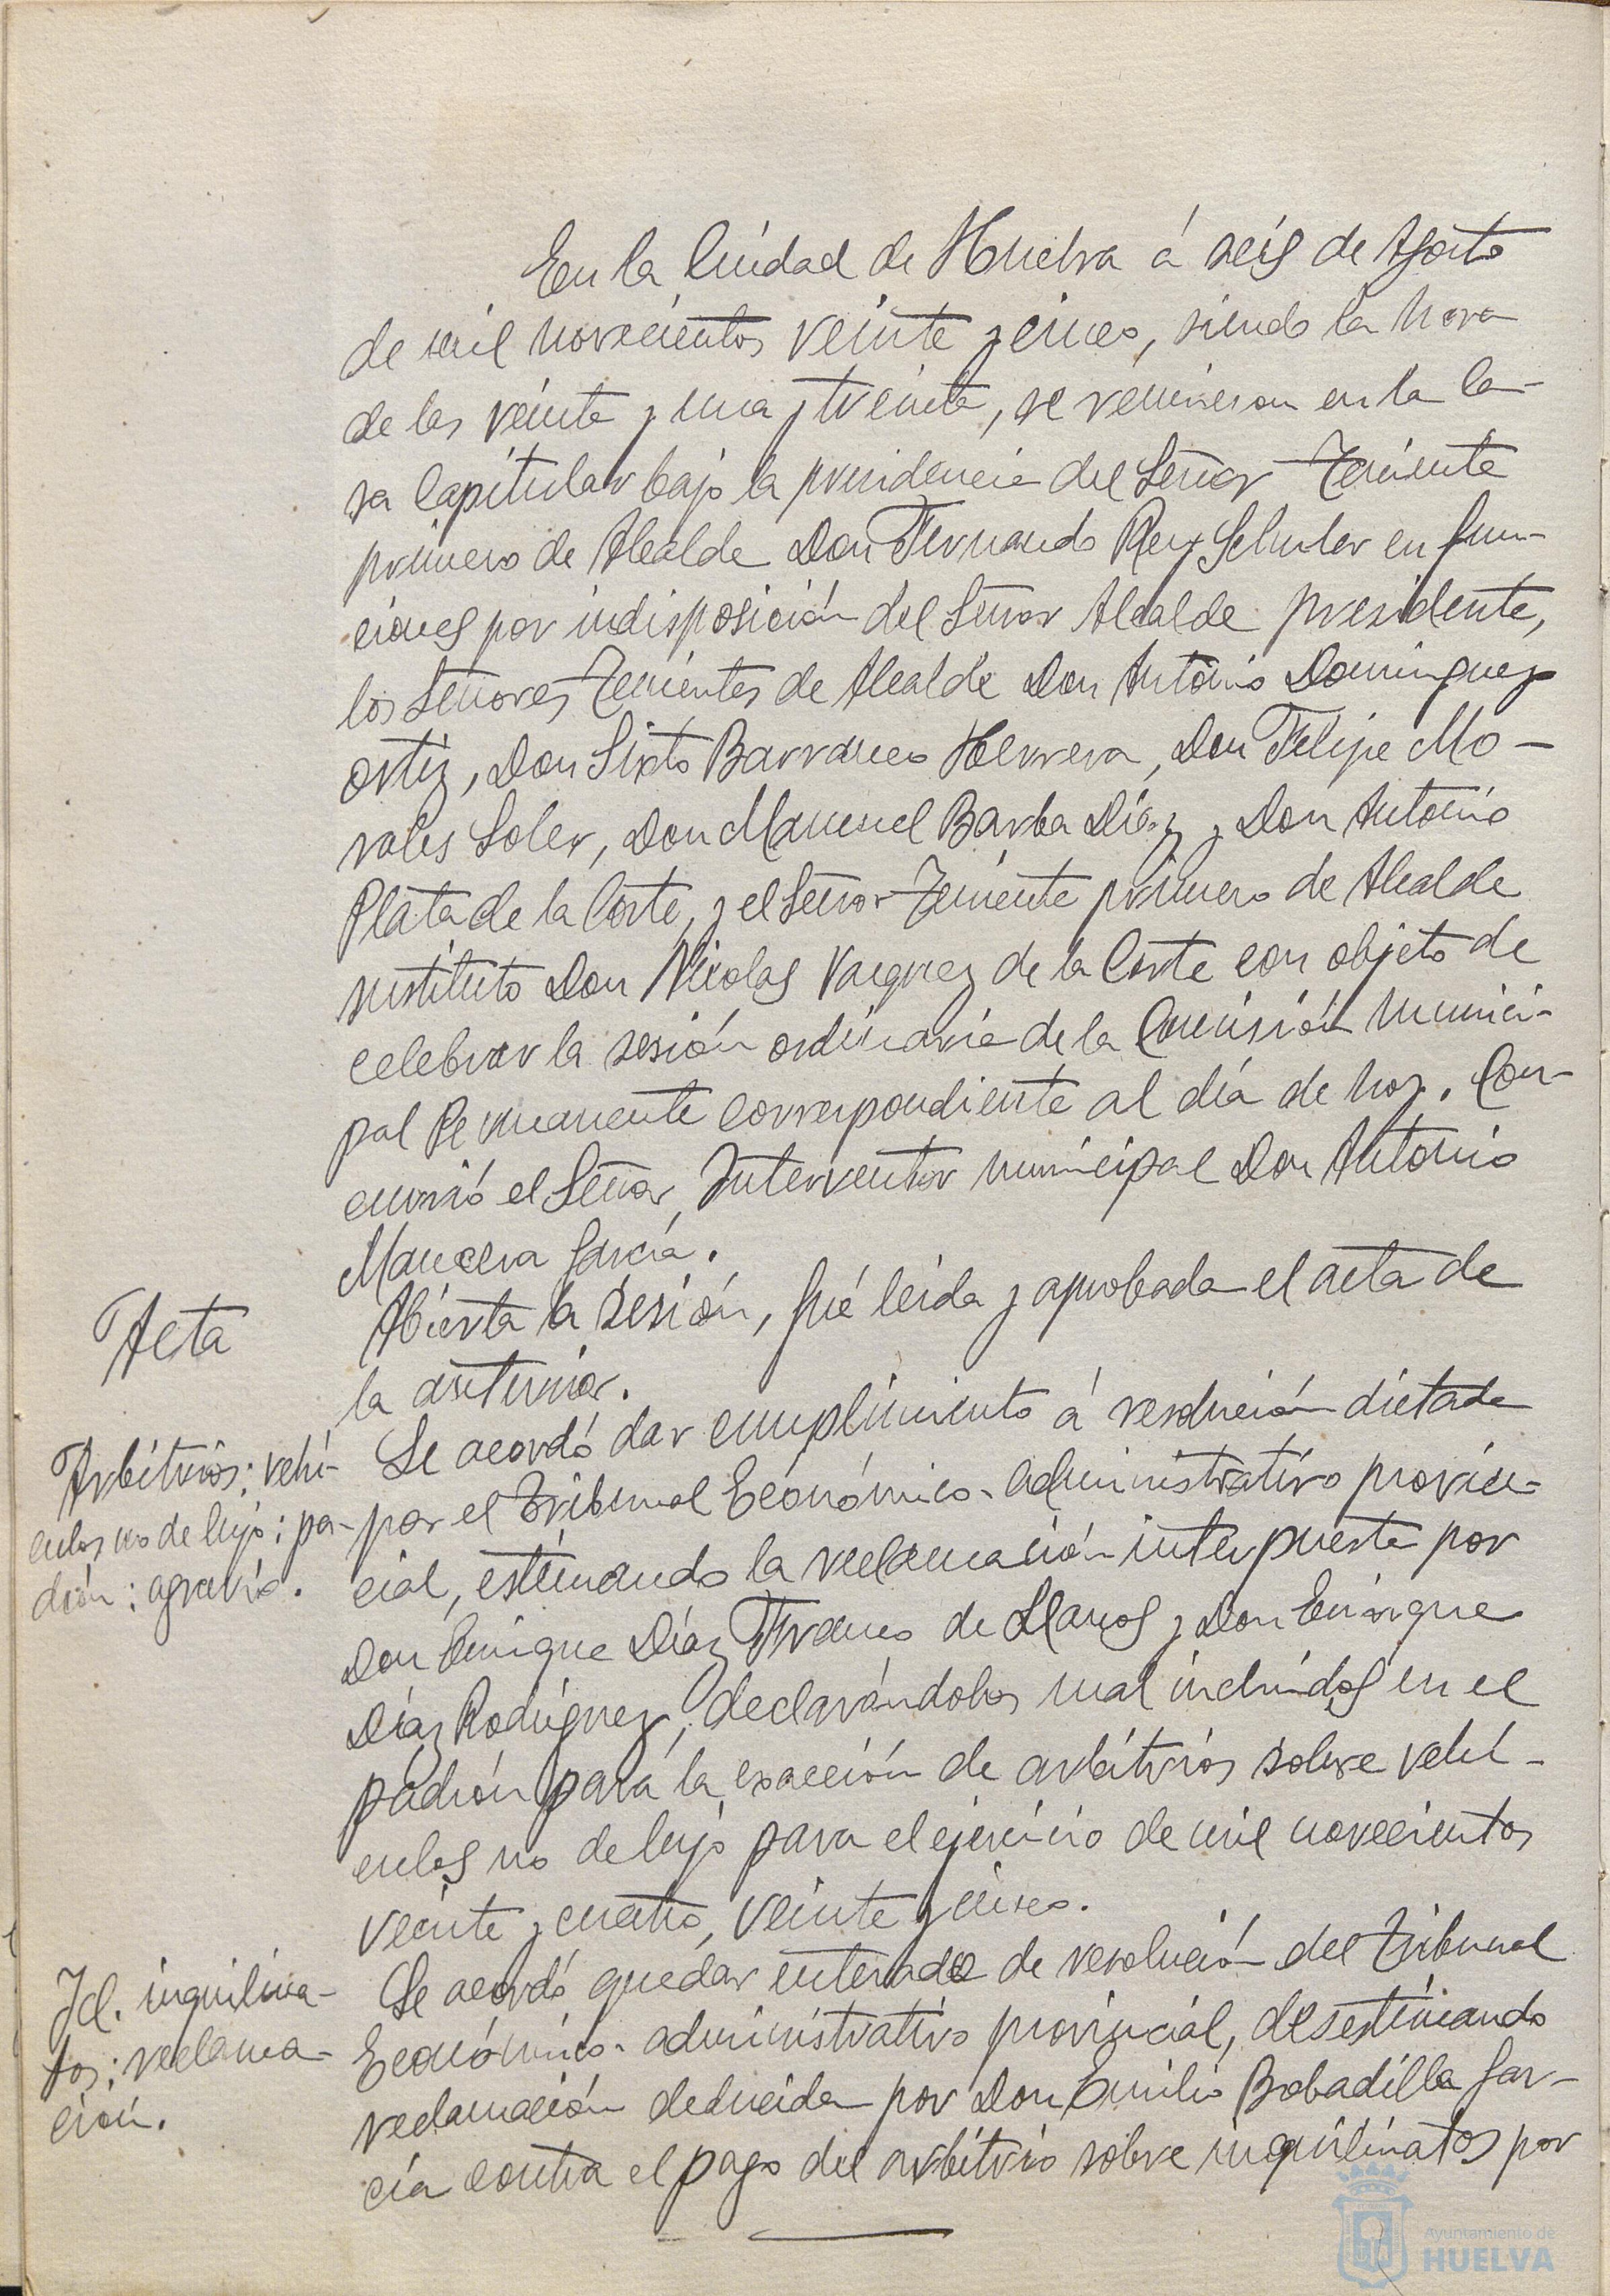 En la Ciudad de Huelva á seis de Agosto
de mil novecientos veinte y cinco, siendo la hora
de las veinte y una y treinta, se reunieron en la Ca-
sa Capitular bajo la presidencia del Señor Teniente
primero de Alcalde Don Fernando Rey Schuler en fun-
ciones por indisposición del Señor Alcalde presidente,
los Señores Tenientes de Alcalde Don Antonio Dominguez
Ortiz, Don Sixto Barranco Herrera, Don Felipe Mo-
rales Soler, Don Manuel Barba Díaz y Don Antonio
Plata de la Corte, y el Señor Teniente primero de Alcalde
sustituto Don Nicolas Vazquez de la Corte con objeto de
celebrar la sesión ordinaria de la Comisión Munici-
pal Permanente correspondiente al día de hoy. Con-
currió el Señor Interventor municipal Don Antonio
Mancera García.
Acta
Abierta la sesión, fué leida y aprobada el acta de
la anterior.
Arbitrios: vehí-
culos no de lujo: pa-
drón: agravio.
Se acordó dar cumplimiento á resolución dictada
por el Tribunal Económico-administrativo provin-
cial, estimando la reclamación interpuesta por
Don Enrique Díaz Franco de Llanos y Don Enrique
Díaz Rodriguez, declarándolos mal incluídos en el
padrón para la exacción de arbitrios sobre vehí-
culos no de lujo para el ejercicio de mil novecientos
veinte y cuatro, veinte y cinco.
Id. inquilina-
tos: reclama-
ción.
Se acordó quedar enterada de resolución del Tribunal
Económico-administrativo provincial, desestimando
reclamación deducida por Don Emilio Bobadilla Gar-
cía contra el pago del arbitrio sobre inquilinatos por
Ayuntamiento de
HUELVA